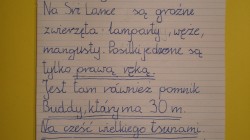 Na Sri Lance są groźne
zwierzęta: lamparty, węże,
mangusty. Posiłki jedzone są
tylko prawą ręką.
Jest tam również pomnik
Buddy, który ma 30 m.
Na cześć wielkiego tsunami